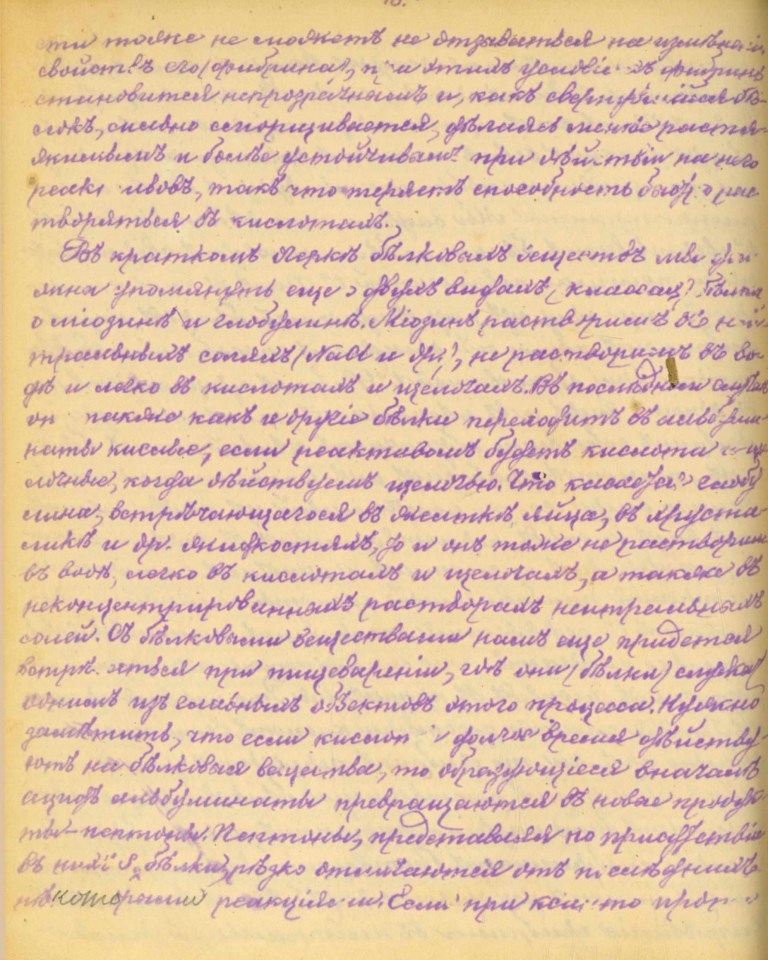 сти тоже не можетъ не отзываться на измѣненіи
свойствъ его (фибрина), при этихъ условіяхъ фибринъ
становится непрозрачнымъ и, какъ свернувшійся бѣ-
локъ, сильно сморщивается, дѣлаясь менѣе растя-
жимымъ и болѣе устойчивымъ при дѣйствіи на него
реактивовъ, такъ что теряетъ способность быстро рас-
творяться въ кислотахъ.
Въ краткомъ очеркѣ бѣлковыхъ веществъ мы дол-
жны упомянуть еще о двухъ видахъ (классахъ) бѣлка
о міозинѣ и глобулинѣ. Міозинъ растворимъ въ ней-
тральныхъ соляхъ (NaCl и др.), не растворимъ въ во-
дѣ и легко въ кислотахъ и щелочахъ. Въ послѣднемъ случаѣ
он также какъ и другіе бѣлки переходитъ въ альбуми-
наты кислые, если реактивомъ будетъ кислота и ще-
лочные, когда дѣйствуемъ щелочью. Что касается глобу
лина, встрѣчающагося въ желткѣ яйца, въ хруста-
ликѣ и др. жидкостяхъ, то и онъ тоже не растворимъ
въ водѣ, легко въ кислотахъ и щелочахъ, а также въ
неконцентрированныхъ растворахъ нейтральныхъ
солей. Съ бѣлковыми веществами намъ еще придется
встрѣчаться при пищевареніи, гдѣ они (бѣлки) служатъ
однимъ изъ главныхъ объектовъ этого процесса. Нужно
замѣтить, что если кислоты долгое время дѣйству-
ютъ на бѣлковыя вещества, то образующіеся вначалѣ
ацидъ альбуминаты превращаются въ новые продук
ты-пептоны. Пептоны, представляя по присутствію
въ нихъ S, бѣлки, рѣзко отличаются отъ послѣднихъ
нѣкоторыми реакціями. Если при